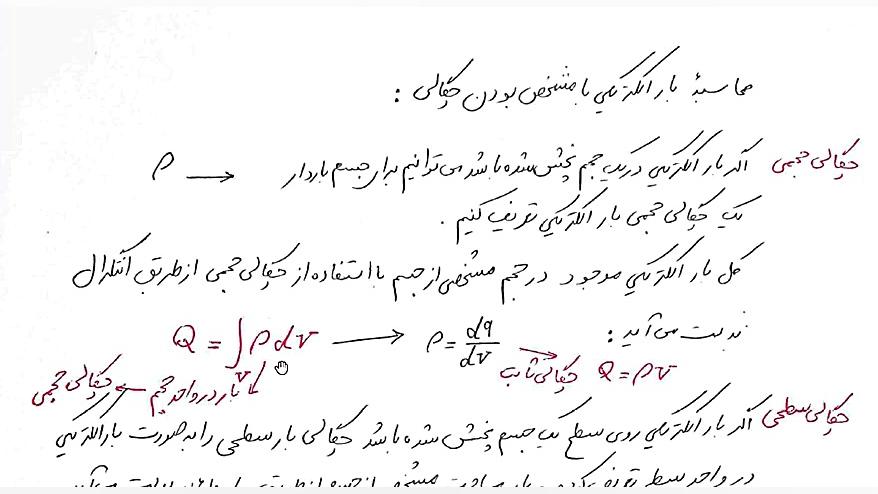 محاسبهٔ بار الکتریکی با مشخص بودن چگالی :
چگالی حجمی اگر بار الکتریکی در یک حجم پخش شده باشد می توانیم برای جسم باردار → ρ
یک چگالی حجمی بار الکتریکی تعریف کنیم .
کل بار الکتریکی موجود در حجم مشخصی از جسم با استفاده از چگالی حجمی از طریق انتگرال
بدست می آید :
Q = ∫ᵥ ρ dv → ρ = dq/dv
چگالی ثابت Q = ρv
بار در واحد حجم ← چگالی حجمی
چگالی سطحی اگر بار الکتریکی روی سطح یک جسم پخش شده باشد چگالی بار سطحی را به صورت بار الکتریکی
در واحد سطح